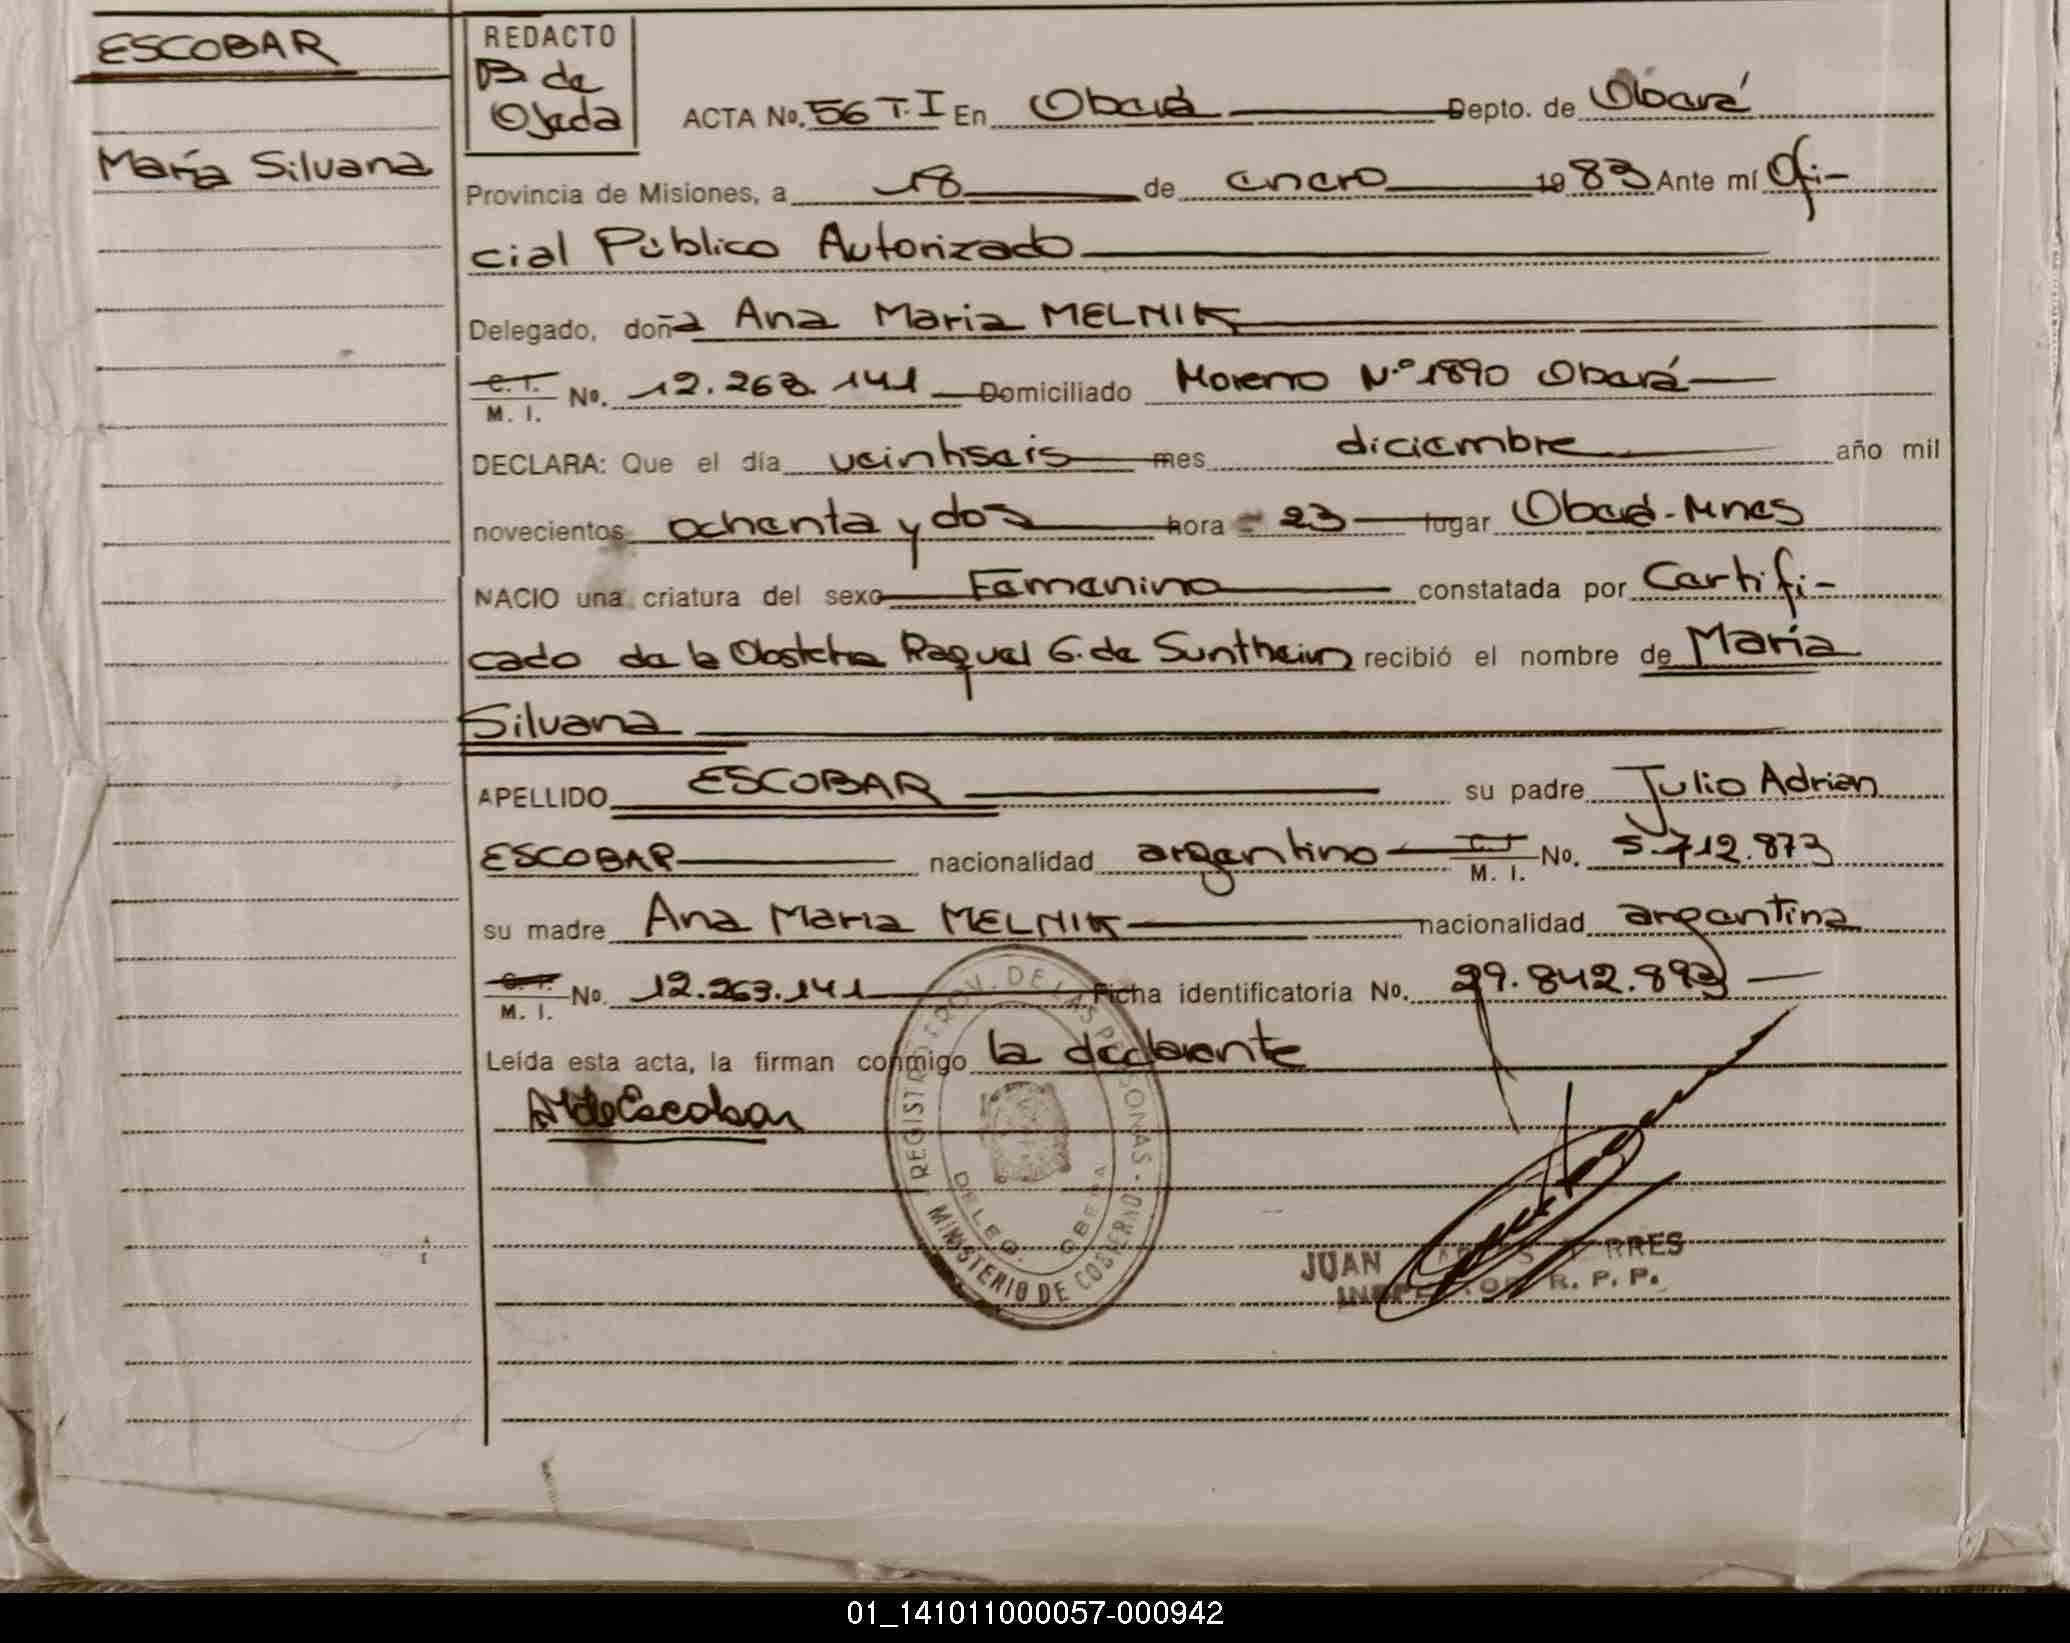 ESCOBAR
María Silvana
REDACTO
B de
Ojeda
ACTA No. 56 T.I En Oberá Depto. de Oberá
Provincia de Misiones, a 18 de enero 1983 Ante mí Ofi-
cial Público Autorizado
Delegado, doña Ana Maria MELNIK
C. I.
M. I. No. 12.263.141 Domiciliado Moreno N.º 1890 Oberá
DECLARA: Que el día veintiseis mes diciembre año mil
novecientos ochenta y dos hora 23 lugar Oberá-Mnes
NACIO una criatura del sexo Femenino constatada por Certifi-
cado de la Obstetra Raquel G. de Suntheim recibió el nombre de María
Silvana
APELLIDO ESCOBAR su padre Julio Adrian
ESCOBAR nacionalidad argentino C. I.
M. I. No. 5.712.873
su madre Ana Maria MELNIK nacionalidad argentina
C. I.
M. I. No. 12.263.141 Ficha identificatoria No. 29.842.893
Leída esta acta, la firman conmigo la declarante
AMdeEscobar
REGISTRO PROV. DE LAS PERSONAS
DELEG. OBERA
MINISTERIO DE GOBIERNO
JUAN
R. P. P.
01_141011000057-000942